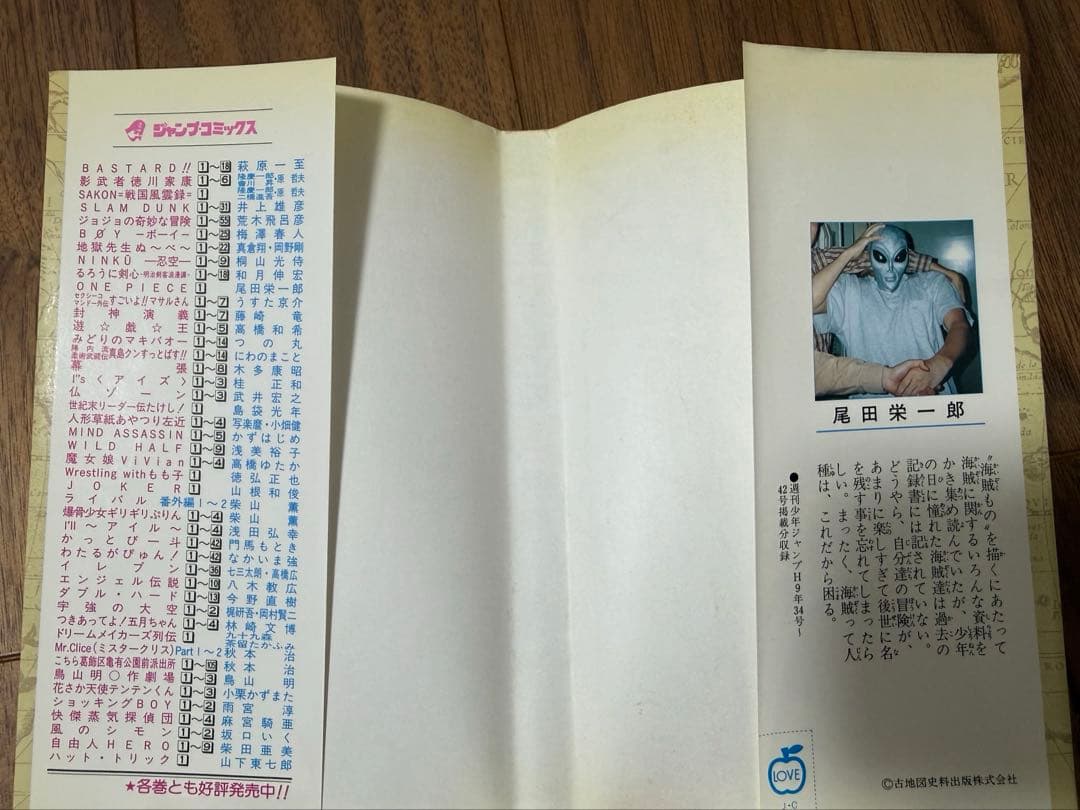 ジャンプ・コミックス
BASTARD!! 1〜18 萩原一至
影武者徳川家康 1〜6 隆慶一郎・原哲夫 會川昇
SAKON=戦国風雲録= 1 隆慶一郎・原哲夫 二橋進吾
SLAM DUNK 1〜31 井上雄彦
ジョジョの奇妙な冒険 1〜55 荒木飛呂彦
BØY ─ボーイ─ 1〜25 梅澤春人
地獄先生ぬ〜べ〜 1〜22 真倉翔・岡野剛
NINKŪ ─忍空─ 1〜9 桐山光侍
るろうに剣心-明治剣客浪漫譚- 1〜18 和月伸宏
ONE PIECE 1 尾田栄一郎
セクシーコマンドー外伝 すごいよ!!マサルさん 1〜7 うすた京介
封神演義 1〜7 藤崎竜
遊☆戯☆王 1〜5 高橋和希
みどりのマキバオー 1〜14 つの丸
陣内流柔術武闘伝 真島クンすっとばす!! 1〜14 にわのまこと
幕張 1〜6 木多康昭
I"s〈アイズ〉 1〜3 桂正和
仏ゾーン 1〜3 武井宏之
世紀末リーダー伝たけし! 1 島袋光年
人形草紙あやつり左近 1〜4 写楽麿・小畑健
MIND ASSASSIN 1〜5 かずはじめ
WILD HALF 1〜9 浅美裕子
魔女娘ViVian 1〜4 高橋ゆたか
Wrestling withもも子 1 徳弘正也
JOKER 1 山根和俊
ライバル 番外編1〜2 柴山薫
爆骨少女ギリギリぷりん 1〜4 柴山薫
I'll 〜アイル〜 1〜4 浅田弘幸
かっとび一斗 1〜42 門馬もとき
わたるがぴゅん! 1〜42 なかいま強
イレブン 1〜36 七三太朗・高橋広
エンジェル伝説 1〜10 八木教広
ダブル・ハード 1〜13 今野直樹
宇強の大空 1〜2 梶研吾・岡村賢二
つきあってよ!五月ちゃん 1〜4 林崎文博
ドリームメイカーズ列伝 1 九十九森 茶留たかふみ
Mr.Clice(ミスタークリス) Part1〜2 秋本治
こちら葛飾区亀有公園前派出所 秋本治
鳥山明○作劇場 1〜3 鳥山明
花さか天使テンテンくん 1〜3 小栗かずまた
ショッキングBOY 1〜2 雨宮淳
快傑蒸気探偵団 1〜4 麻宮騎亜
風のシモン 1〜2 坂口いく
自由人HERO 1〜9 柴田亜美
ハット・トリック 1 山下東七郎
★各巻とも好評発売中!!
尾田栄一郎
"海賊もの"を描くにあたって
海賊に関するいろんな資料を
かき集め読んでいたが、少年
の日に憧れた海賊達は過去の
記録書には記されていない。
どうやら、自分達の冒険が、
あまりに楽しすぎて後世に名
を残す事を忘れてしまったら
しい。まったく、海賊って人
種は、これだから困る。
●週刊少年ジャンプH9年34号〜
42号掲載分収録
LOVE
J・C
©古地図史料出版株式会社